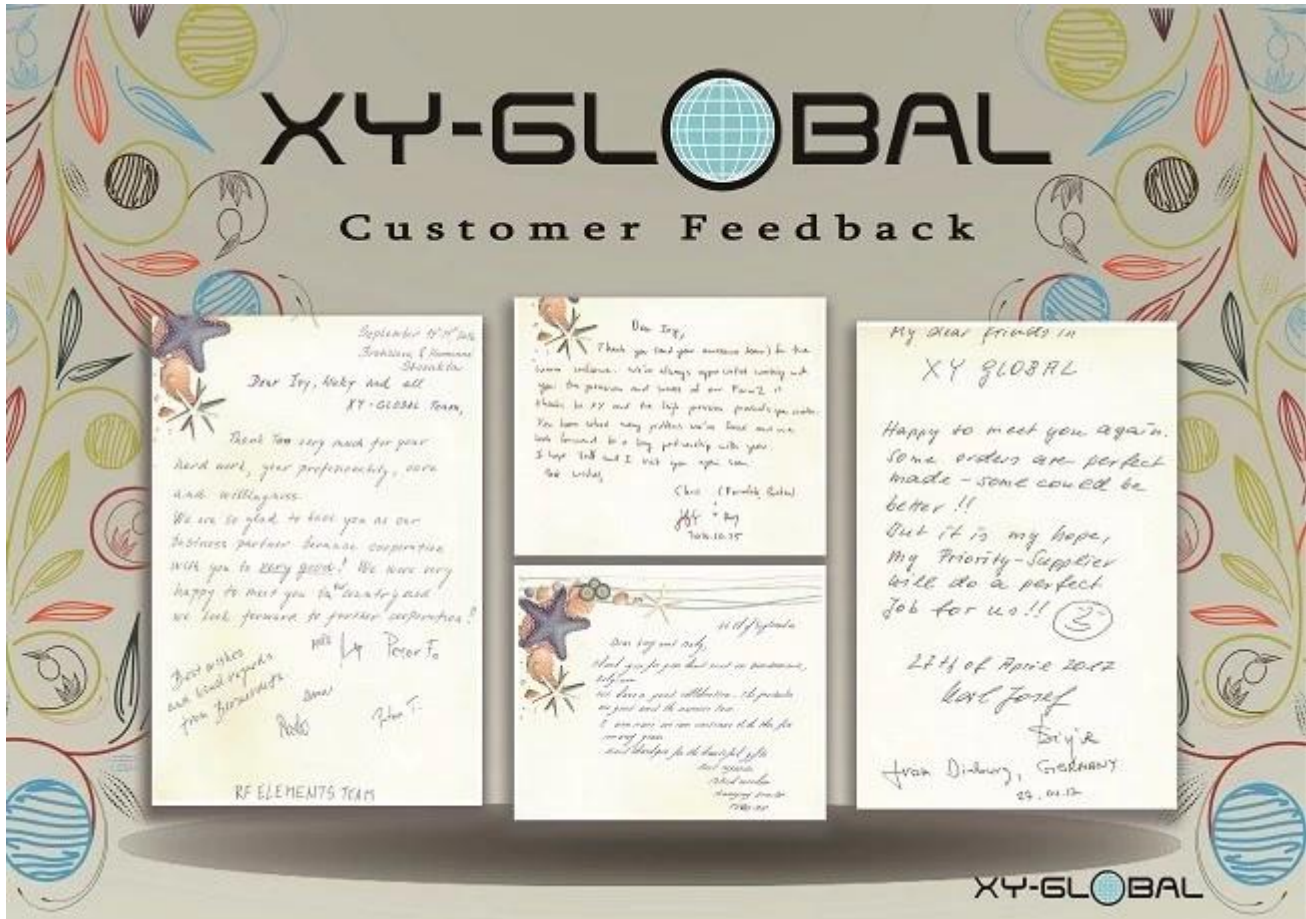 XY-GLOBAL
Customer Feedback
September
Slovakia
Dear Ivy, and all
XY-GLOBAL Team,
Thank You very much for your
hard work, your care
and willingness.
We are so glad to have you as our
business partner because cooperation
with you is very good! We were very
happy to meet you in country and
we look forward to further cooperation!
Peter
Best wishes
and kind regards
from
Peter T.
RF ELEMENTS TEAM
Dear Ivy,
Thank you (and your awesome team) for the
warm welcome. We've always appreciated working with
you. The precision and of our Form2 is
thanks to XY and the high precision products you make.
You have solved many problems we've faced and we
look forward to a long partnership with you.
I hope and I visit you again soon.
Best wishes,
Chris
2016.10.25
of September
Dear Ivy and
Thank you for your
We have a good collaboration. The products
are good and the service too.
we can continue it like this for
many years
for the beautiful gifts
Best regards
Managing Director
My dear friends in
XY GLOBAL
Happy to meet you again.
Some orders are perfect
made - some could be
better!!
But it is my hope,
my Priority-Supplier
will do a perfect
Job for us!!
27th of April 2017
Karl Josef
from GERMANY
27.04.17
XY-GLOBAL